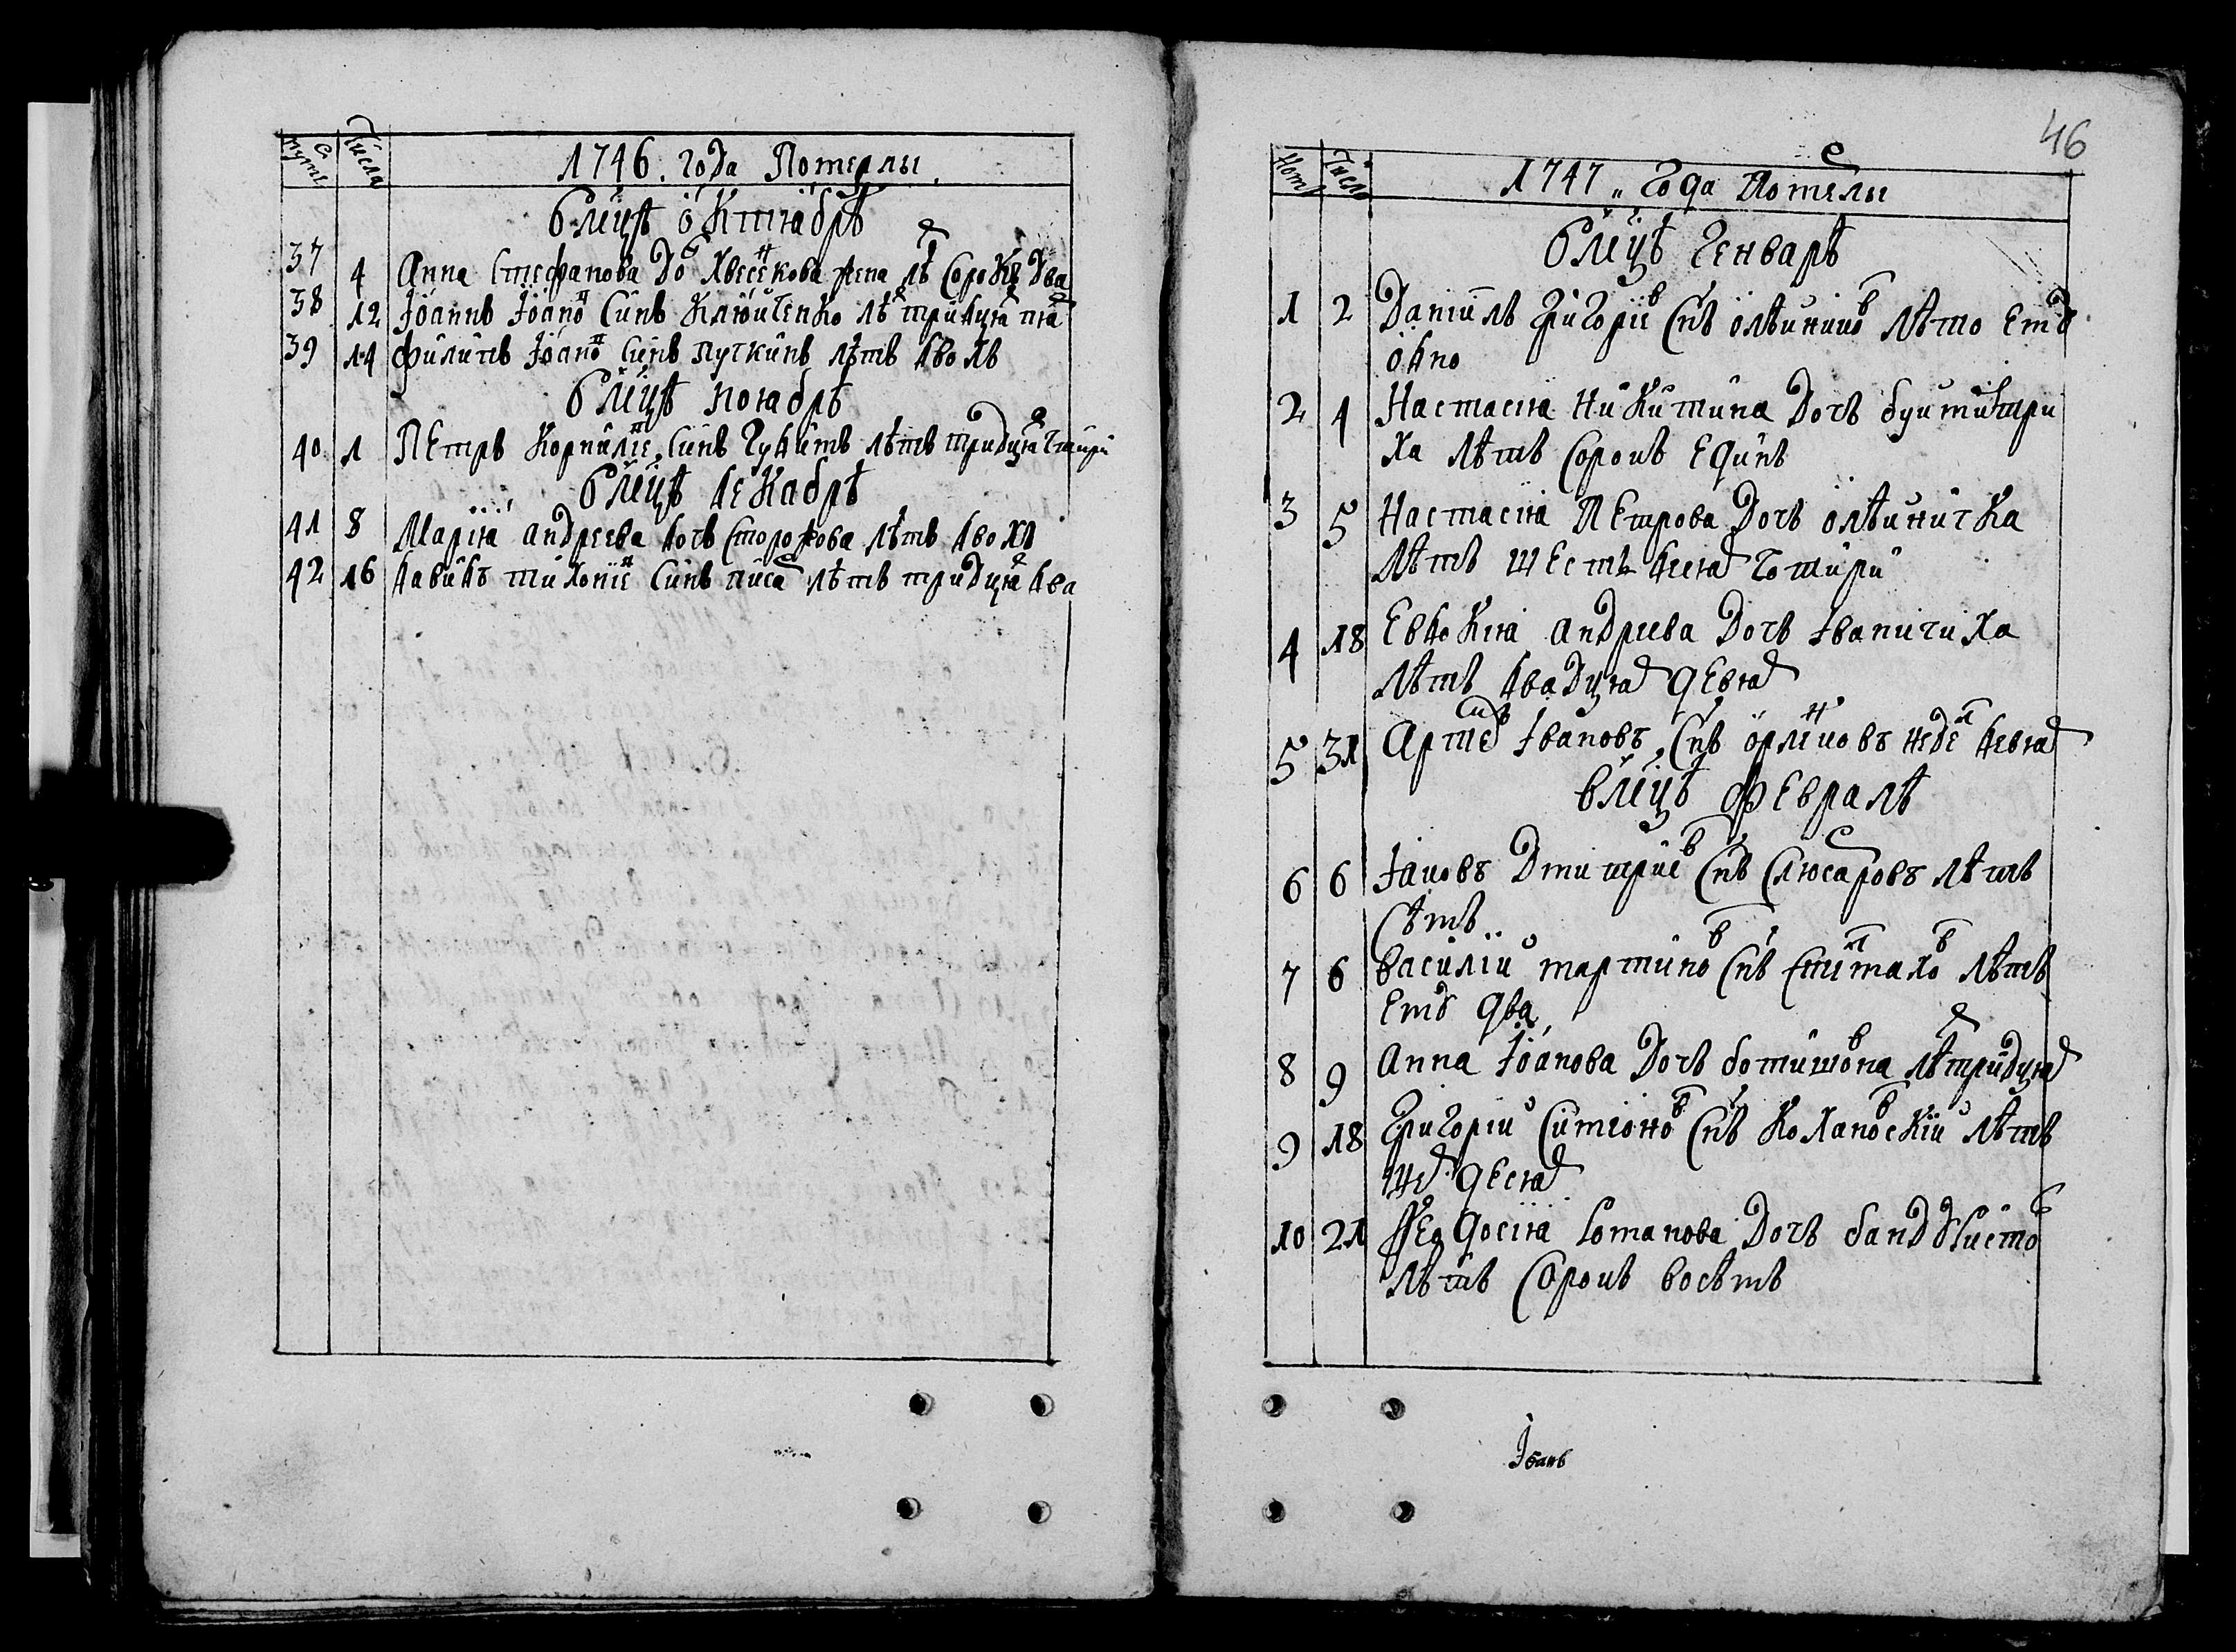 Числа
1746. года Померлы
в мцѣ октиабрѣ
37 4 Анна Стефанова доч Хвесенкова жена лѣт сорокъ два
38 12 Іоаннъ Іоанов синъ Клюйченко лѣт тридцят
39 14 Филипъ Іоанов синъ Пучкинъ лѣтъ двохъ
в мцѣ ноіабрѣ
40 1 Петръ Корниліев синъ лѣтъ тридцят
в мцѣ декабрѣ
41 8 Маріия Андреева дочъ Сторожова лѣтъ двохъ
42 16 Давидъ синъ Писар лѣтъ тридцят два
46
Число
1747 „ года Померлы
в мцѣ генварѣ
1 2 Даніилъ Григоріев снъ Олѣйников лѣто ему
одно
2 4 Настасия Никитина дочъ
ха лѣтъ сорокъ единъ
3 5 Настасия Петрова дочъ олѣйничка
лѣтъ шестьдесят чотири
4 18 Евдокия Андреева дочъ Іваничиха
лѣтъ двадцят девят
5 31 Артем Івановъ снъ недел девят
в мцѣ февралѣ
6 6 Іаковъ Дмитриев снъ Слюсаровъ лѣтъ
сѣмъ
7 6 Василій Мартинов снъ лѣтъ
ему два
8 9 Анна Іоанова дочъ лѣт тридцят
9 18 Григорій Симионов снъ Кохановскій лѣтъ
шездесят
10 21 Феодосия Романова дочъ
лѣтъ сорокъ восѣмъ
Іванъ